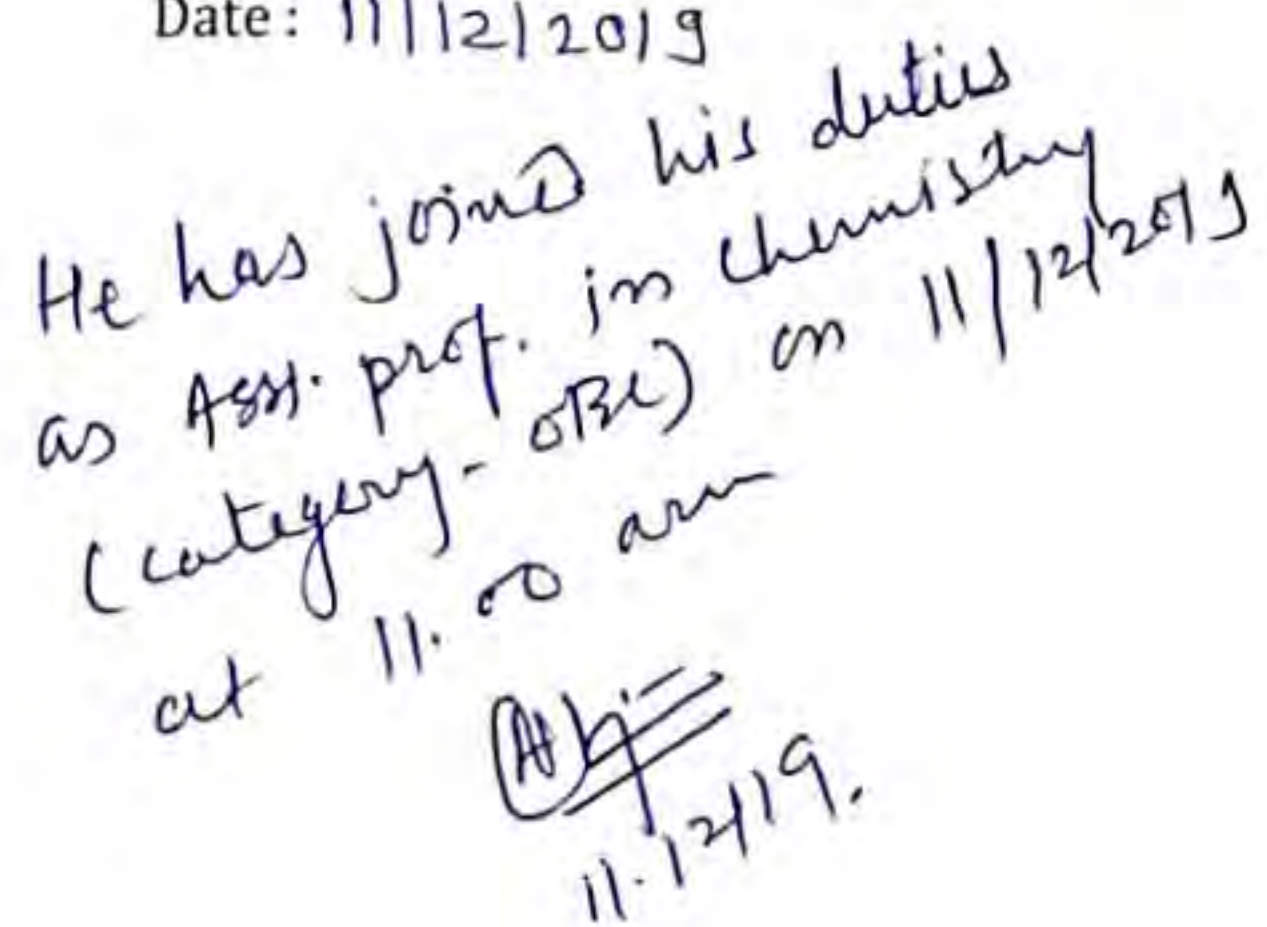 Date: 11/12/2019
He has joined his duties
as Asst. prof. in chemistry
(category - OBC) on 11/12/2019
at 11.00 am
11.12/19.